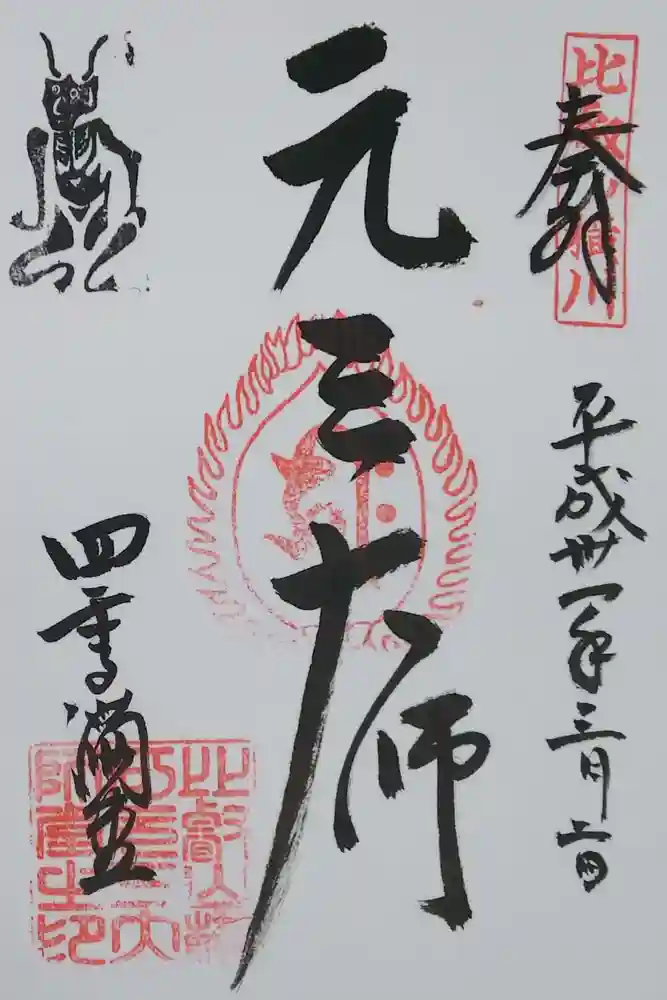 奉拝
比叡山横川
平成卅一年三月
元三大師
四季講堂
比叡山横
川元三大
師堂之印